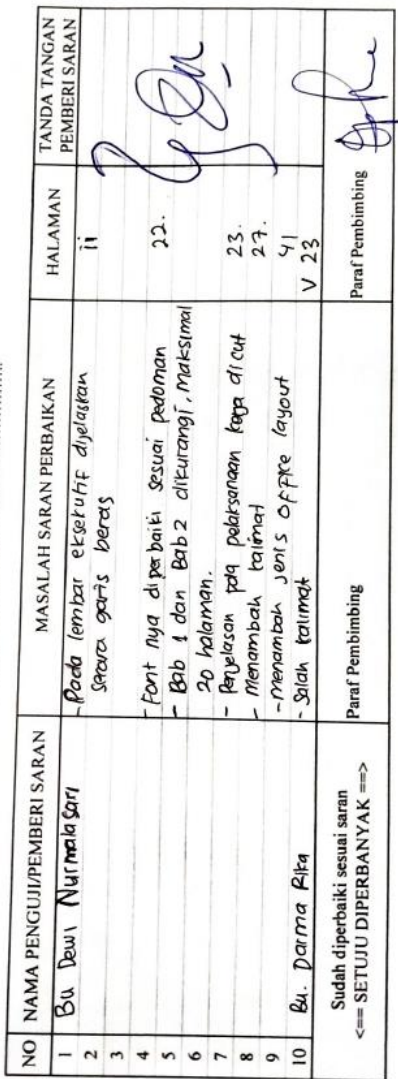 NO NAMA PENGUJI/PEMBERI SARAN MASALAH SARAN PERBAIKAN HALAMAN TANDA TANGAN PEMBERI SARAN
1 Bu Dewi Nurmalasari - Pada lembar eksekutif dijelaskan ii
2 secara garis beras
3
4 - Font nya diperbaiki sesuai pedoman 22.
5 - Bab 1 dan Bab 2 dikurangi, maksimal
6 20 halaman.
7 - Penjelasan pada pelaksanaan kerja di cut 23.
8 - Menambah kalimat 27.
9 - menambah jenis office layout 41
10 Bu. Darma Rika - Salah kalimat V 23
Sudah diperbaiki sesuai saran
<== SETUJU DIPERBANYAK ==>
Paraf Pembimbing
Paraf Pembimbing